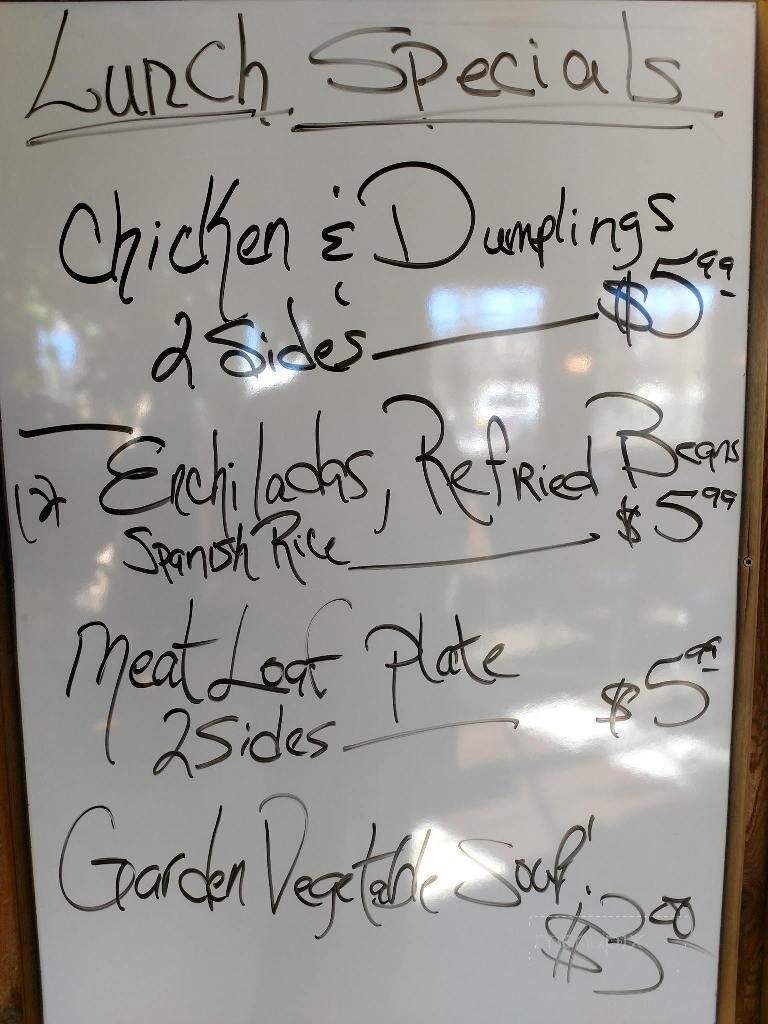 Lunch Specials
Chicken & Dumplings
2 Sides $5.99
(2) Enchiladas, Refried Beans
Spanish Rice $5.99
Meat Loaf Plate
2 Sides $5.99
Garden Vegetable Soup
$3.00
menupix